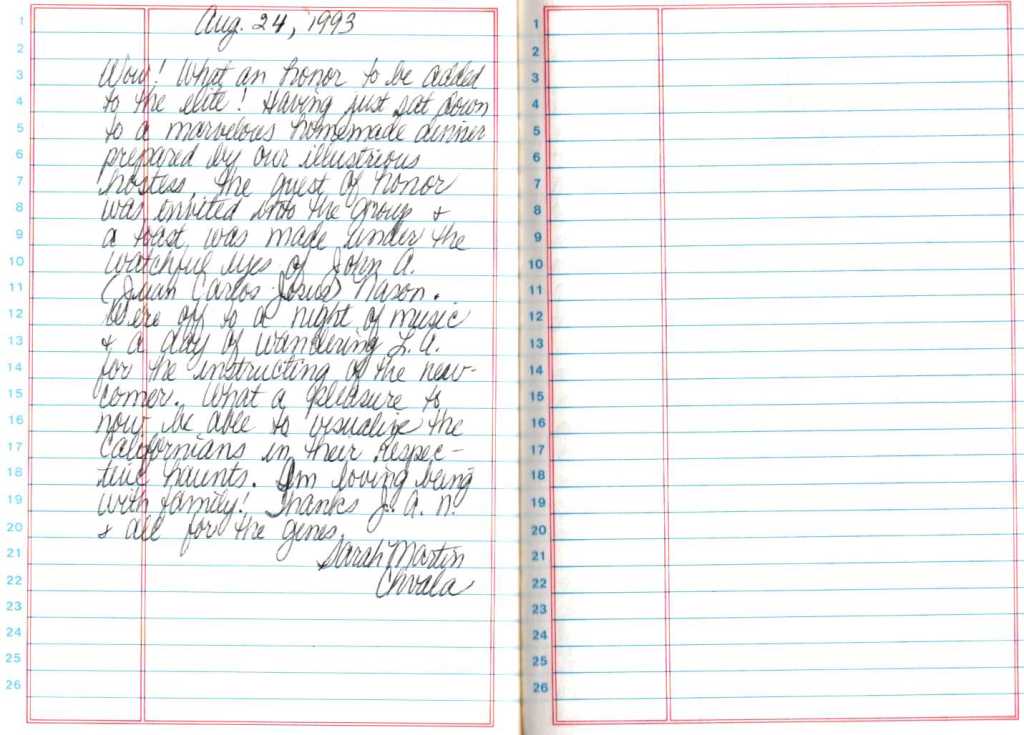 Aug. 24, 1993
Wow! What an honor to be added
to the elite! Having just sat down
to a marvelous homemade dinner
prepared by our illustrious
hostess, the guest of honor
was invited into the group &
a toast was made under the
watchful eyes of John A.
(Juan Carlos Josue) Nason.
We're off to a night of music
& a day of wandering L.A.
for the instructing of the new-
comer. What a pleasure to
now be able to visualize the
Californians in their respec-
tive haunts. I'm loving being
with family! Thanks J. A. N.
& all for the genes.
Sarah Martin
Chvala
1
2
3
4
5
6
7
8
9
10
11
12
13
14
15
16
17
18
19
20
21
22
23
24
25
26
1
2
3
4
5
6
7
8
9
10
11
12
13
14
15
16
17
18
19
20
21
22
23
24
25
26